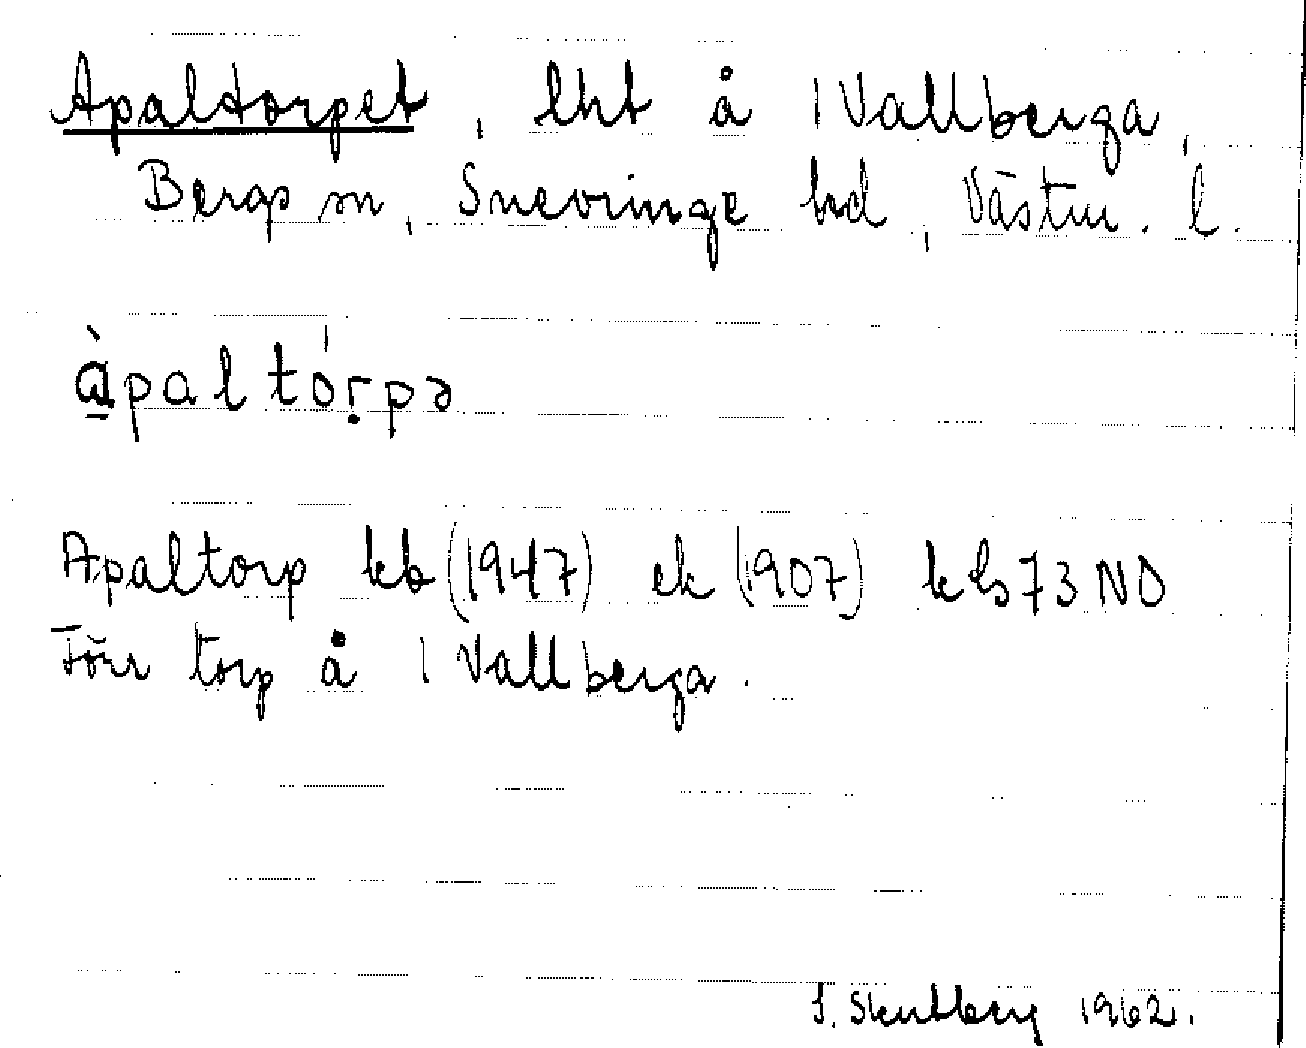 Apaltorpet, lht å 1 Vallberga,
Bergs sn, Snevringe hd, Västm. l.
àpaltórpə
Apaltorp kb (1947) ek (1907) kbl 73 NO
Förr torp å 1 Vallberga.
1962.